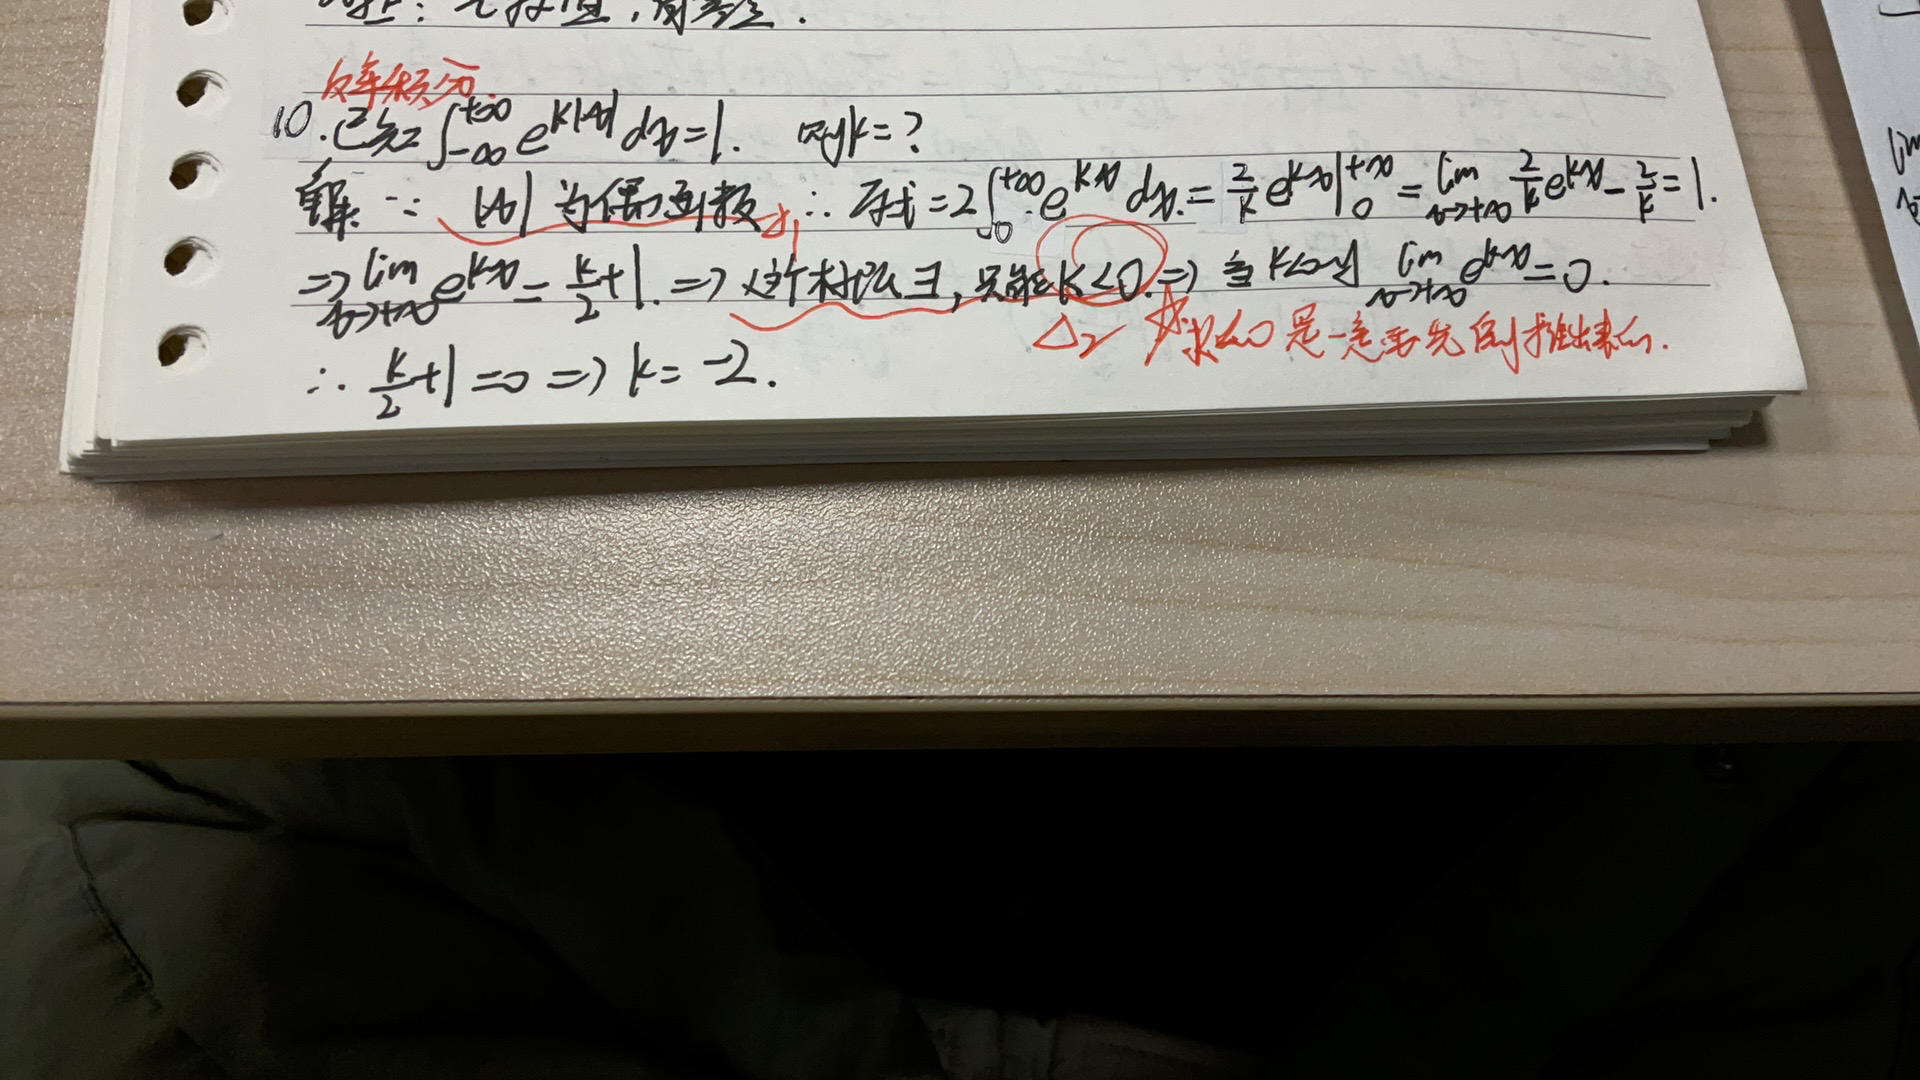 反常积分.
10.已知∫_{-∞}^{+∞} e^{k|x|} dx=1. 则k=?
解: ∵ |x|为偶函数 ∴ 原式=2∫_0^{+∞} e^{kx} dx = 2/k e^{kx}|_0^{+∞} = lim_{x→+∞} 2/k e^{kx} - 2/k = 1.
⇒ lim_{x→+∞} e^{kx} = k/2+1. ⇒ 这个极限∃,只能k<0. ⇒ 当k<0时 lim_{x→+∞} e^{kx}=0.
Δ1
Δ2 ☆ k<0 是一定要先推出来的.
∴ k/2+1=0 ⇒ k=-2.
lim